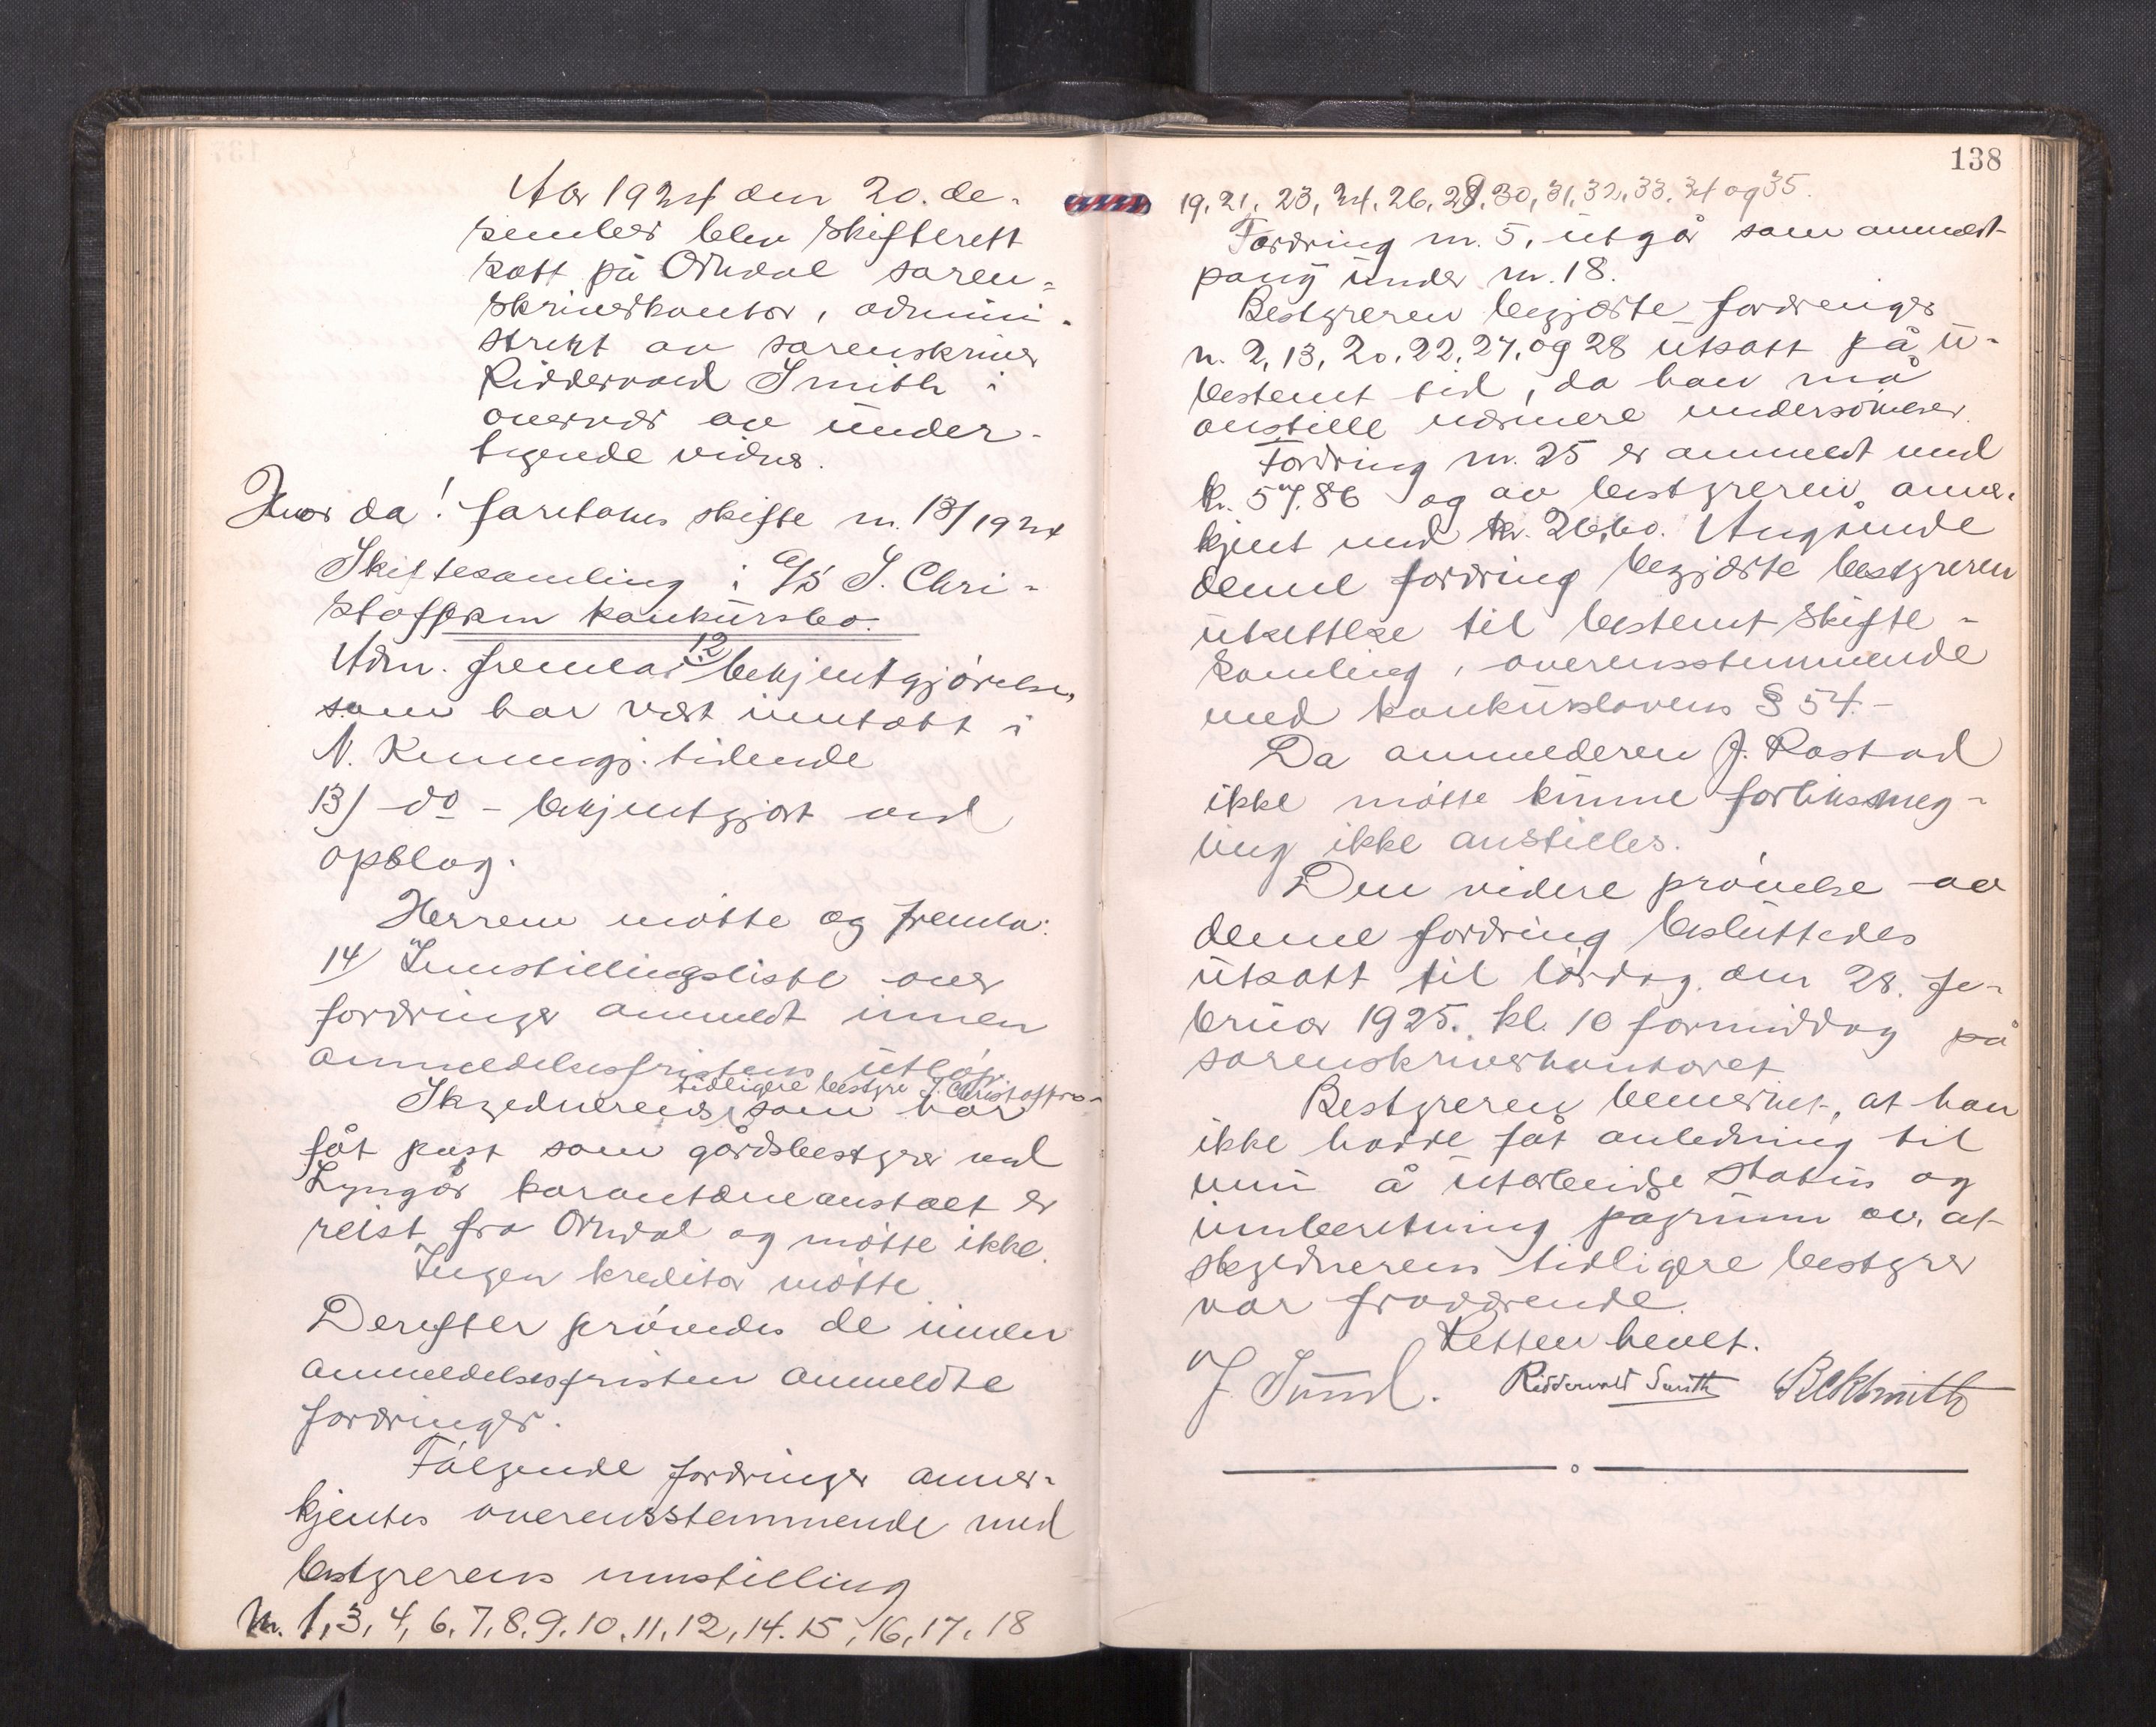 År 1924 den 20. de-
sember blev skifterett
satt på Orkdal soren-
skriverkontor, admini-
strert av sorenskriver
Riddervold Smith i
overvær av under-
tegende vidner.
Hvor da! foretokes skifte nr. 13/1924
Skiftesamling i A/S J. Chri-
stoffersen konkursbo.
Adm. fremla 12) bekjentgjørelse,
som har vært inntatt i
N. Kunngj. tidende
13) do - bekjentgjort ved
opslag.
Herrem møtte og fremla:
14) Innstillingsliste over
fordringer anmeldt innen
anmeldelsesfristens utløp.
tidligere bestyrer J. Christoffer-
Skyldnerens som har
fåt post som gårdsbestyrer ved
Lyngør karantæneanstalt er
reist fra Orkdal og møtte ikke.
Ingen kreditor møtte
Derefter prøvedes de innen
anmeldelsesfristen anmeldte
fordringer.
Følgende fordringer anner-
kjentes overensstemmende med
bestyrerens innstilling
Nr. 1, 3, 4, 6, 7, 8, 9, 10, 11, 12, 14. 15, 16, 17, 18
138
19, 21, 23, 24, 26, 29, 30, 31, 32, 33, 34 og 35.
Fordring nr. 5, utgår som anmeldt
påny under nr. 18.
Bestyreren begjærte fordringer
n. 2, 13, 20, 22, 27, og 28 utsatt på u-
bestemt tid, da han må
anstille nærmere undersøkelser.
Fordring nr. 25 er anmeldt med
kr. 57.86 og av bestyreren anner-
kjent med kr. 26,60. Angående
denne fordring begjærte bestyreren
utsettelse til bestemt skifte-
samling, overensstemmende
med konkurslovens § 54.-
Da anmelderen J. Rostad
ikke møtte kunne forliksmeg-
ling ikke anstilles.
Den videre prøvelse av
denne fordring besluttedes
utsatt til lørdag den 28. fe-
bruar 1925. kl. 10 formiddag på
sorenskriverkontoret
Bestyreren bemerket, at han
ikke hadde fåt anledning til
ennu å utarbeide status og
innberetning pågrunn av, at
skyldnerens tidligere bestyrer
var fraværende.
Retten hevet.
J. Sund. Riddervold Smith